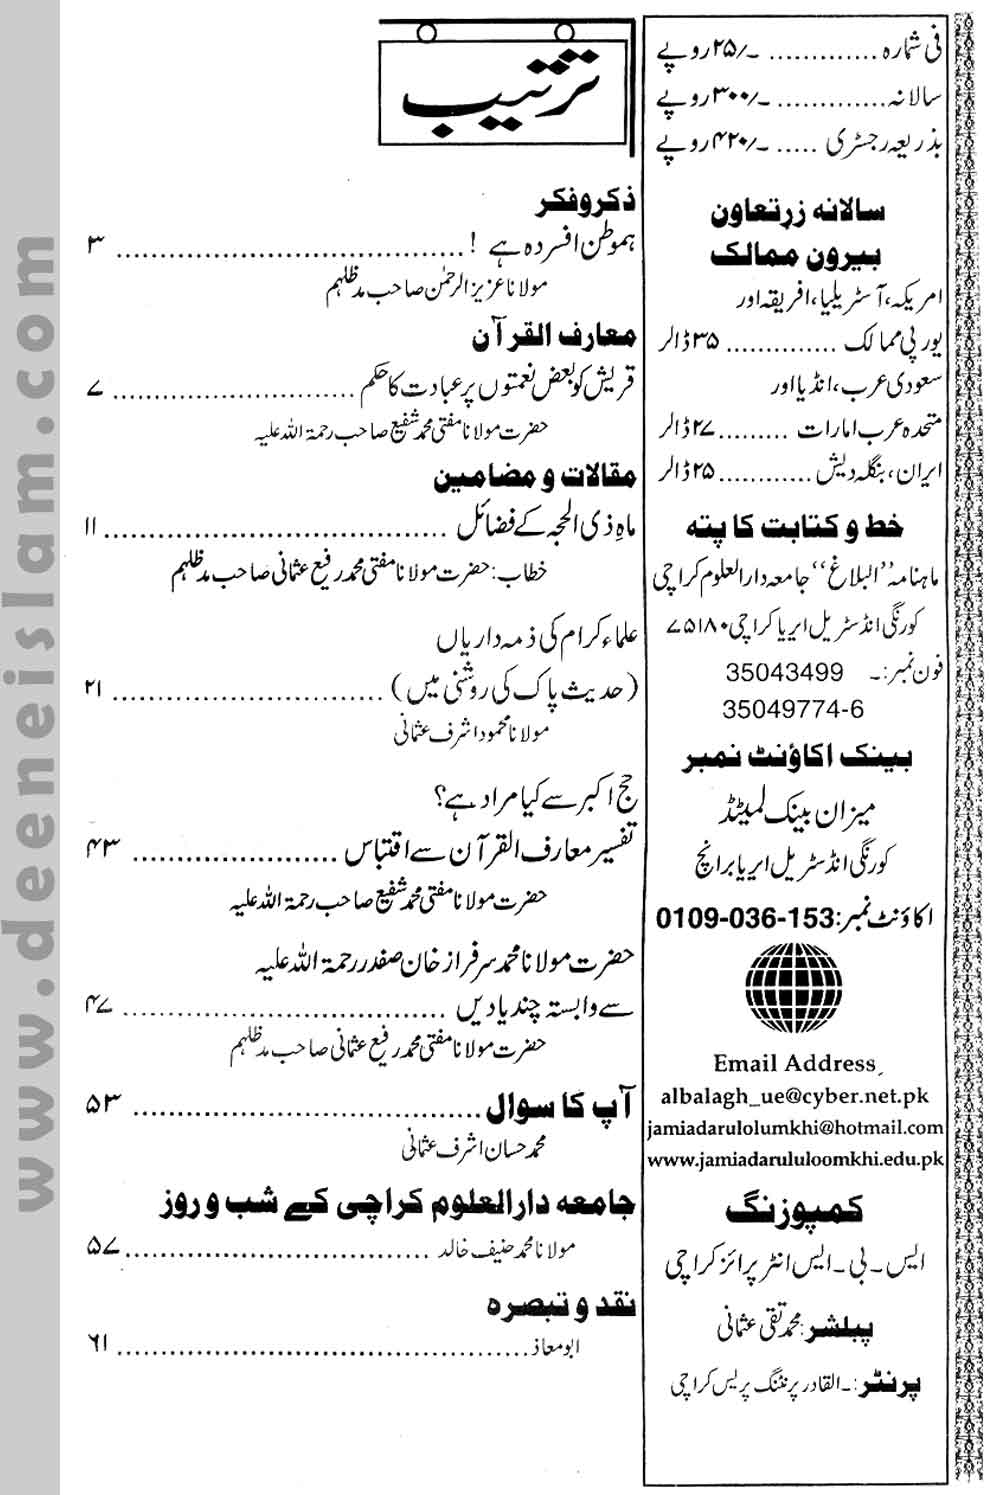 فی شمارہ ............. ۲۵/- روپے
سالانہ ............. ۳۰۰/- روپے
بذریعہ رجسٹری ..... ۴۲۰/- روپے
سالانہ زرِتعاون
بیرون ممالک
امریکہ، آسٹریلیا، افریقہ اور
یورپی ممالک ............. ۳۵ ڈالر
سعودی عرب، انڈیا اور
متحدہ عرب امارات ......... ۲۷ ڈالر
ایران، بنگلہ دیش ............ ۲۵ ڈالر
خط و کتابت کا پتہ
ماہنامہ "البلاغ" جامعہ دارالعلوم کراچی
کورنگی انڈسٹریل ایریا کراچی ۷۵۱۸۰
فون نمبر:۔ 35043499
35049774-6
بینک اکاؤنٹ نمبر
میزان بینک لمیٹڈ
کورنگی انڈسٹریل ایریا برانچ
اکاؤنٹ نمبر: 0109-036-153
Email Address
albalagh_ue@cyber.net.pk
jamiadarulolumkhi@hotmail.com
www.jamiadarululoomkhi.edu.pk
کمپوزنگ
ایس۔بی۔ایس انٹرپرائز کراچی
پبلشر: محمد تقی عثمانی
پرنٹر:۔ القادر پرنٹنگ پریس کراچی
ترتیب
ذکر و فکر
ہموطن افسردہ ہے ! ................................. ۳
مولانا عزیز الرحمٰن صاحب مدظلہم
معارف القرآن
قریش کو بعض نعمتوں پر عبادت کا حکم ........................... ۷
حضرت مولانا مفتی محمد شفیع صاحب رحمۃ اللہ علیہ
مقالات و مضامین
ماہِ ذی الحجہ کے فضائل ................................. ۱۱
خطاب: حضرت مولانا مفتی محمد رفیع عثمانی صاحب مدظلہم
علماء کرام کی ذمہ داریاں
(حدیث پاک کی روشنی میں) ........................... ۲۱
مولانا محمود اشرف عثمانی
حج اکبر سے کیا مراد ہے؟
تفسیر معارف القرآن سے اقتباس ..................... ۴۳
حضرت مولانا مفتی محمد شفیع صاحب رحمۃ اللہ علیہ
حضرت مولانا محمد سرفراز خان صفدر رحمۃ اللہ علیہ
سے وابستہ چند یادیں ................................. ۴۷
حضرت مولانا مفتی محمد رفیع عثمانی صاحب مدظلہم
آپ کا سوال ................................. ۵۳
محمد حسان اشرف عثمانی
جامعہ دارالعلوم کراچی کے شب و روز
مولانا محمد حنیف خالد ............................... ۵۷
نقد و تبصرہ
ابو معاذ ......................................... ۶۱
www.deeneislam.com